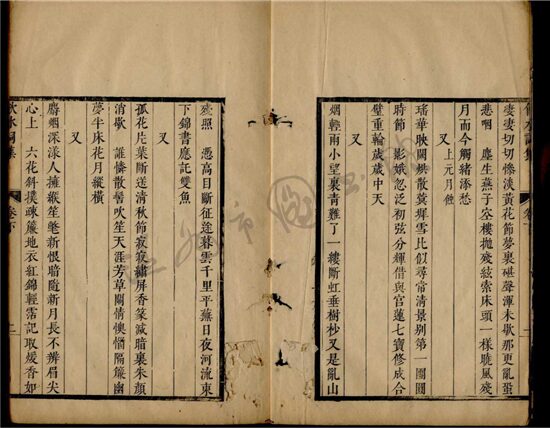 飲水詞集 卷下
淒淒切切慘淡黃花節夢裏砧聲渾未歇那更亂蛩
悲咽　塵生燕子空樓拋殘絃索床頭一樣曉風殘
月而今觸緒添愁
又　上元月蝕
瑤華映闕烘散蓂墀雪比似尋常清景別第一團圞
時節　影娥忽泛初弦分輝借與宮蓮七寶修成合
璧重輪歲歲中天
又
烟輕雨小望裏青難了一縷斷虹垂樹杪又是亂山
殘照　憑高目斷征途暮雲千里平蕪日夜河流東
下錦書應託雙魚
又
孤花片葉斷送清秋節寂寂繡屏香篆滅暗裏朱顏
消歇　誰憐散髻吹笙天涯芳草關情懊惱隔簾幽
夢半床花月縱橫
又
麝烟深漾人擁緱笙氅新恨暗隨新月長不辨眉尖
心上　六花斜撲疎簾地衣紅錦輕霑記取煖香如
飲水詞集 卷下 二